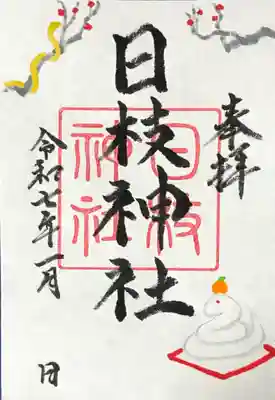 奉拝
日枝神社
日枝神社
令和七年一月　日